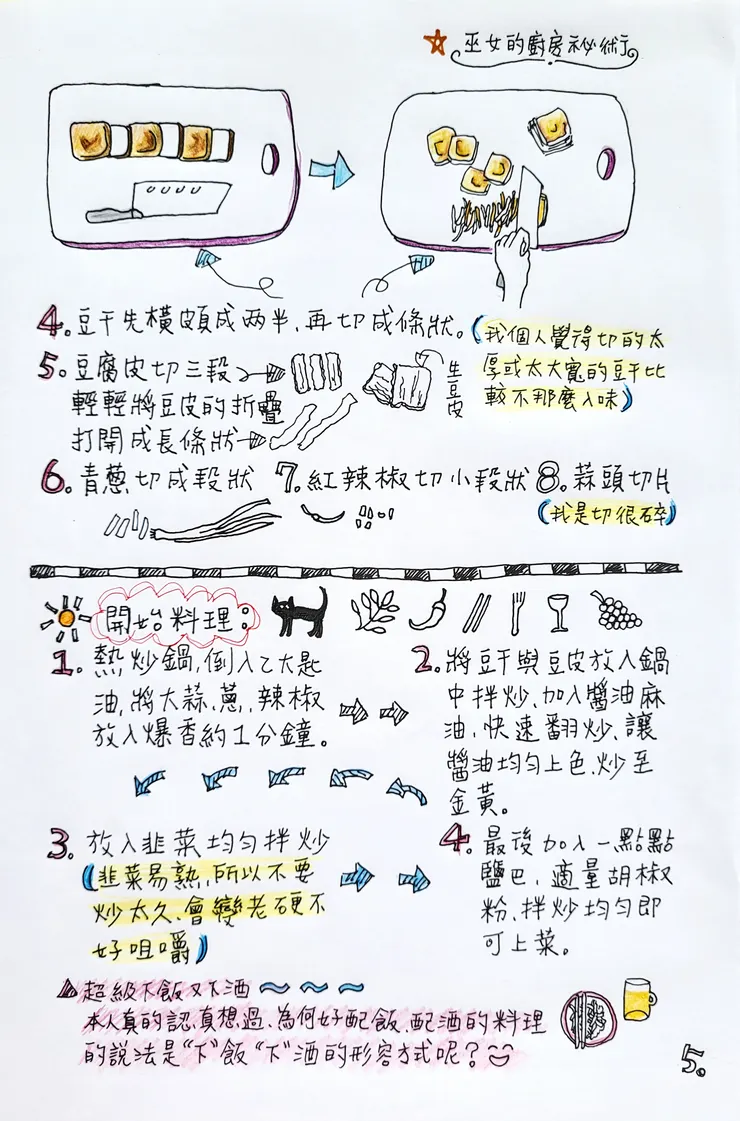 巫女的廚房祕術
4.豆干先橫頗成兩半,再切成條狀。
(我個人覺得切的太
厚或太大寬的豆干比
較不那麼入味)
5.豆腐皮切三段
輕輕將豆皮的折疊
打開成長條狀
生豆皮
6.青蔥切成段狀
7.紅辣椒切小段狀
8.蒜頭切片
(我是切很碎)
開始料理:
1.熱炒鍋,倒入2大匙
油,將大蒜、蔥、辣椒
放入爆香約1分鐘。
2.將豆干與豆皮放入鍋
中拌炒、加入醬油麻
油,快速翻炒、讓
醬油均勻上色,炒至
金黃。
3.放入韭菜均勻拌炒
(韭菜易熟,所以不要
炒太久、會變老硬不
好咀嚼)
4.最後加入一點點
鹽巴,適量胡椒
粉、拌炒均勻即
可上菜。
超級下飯又下酒
本人真的認真想過、為何好配飯、配酒的料理
的說法是"下"飯"下"酒的形容方式呢?
5.